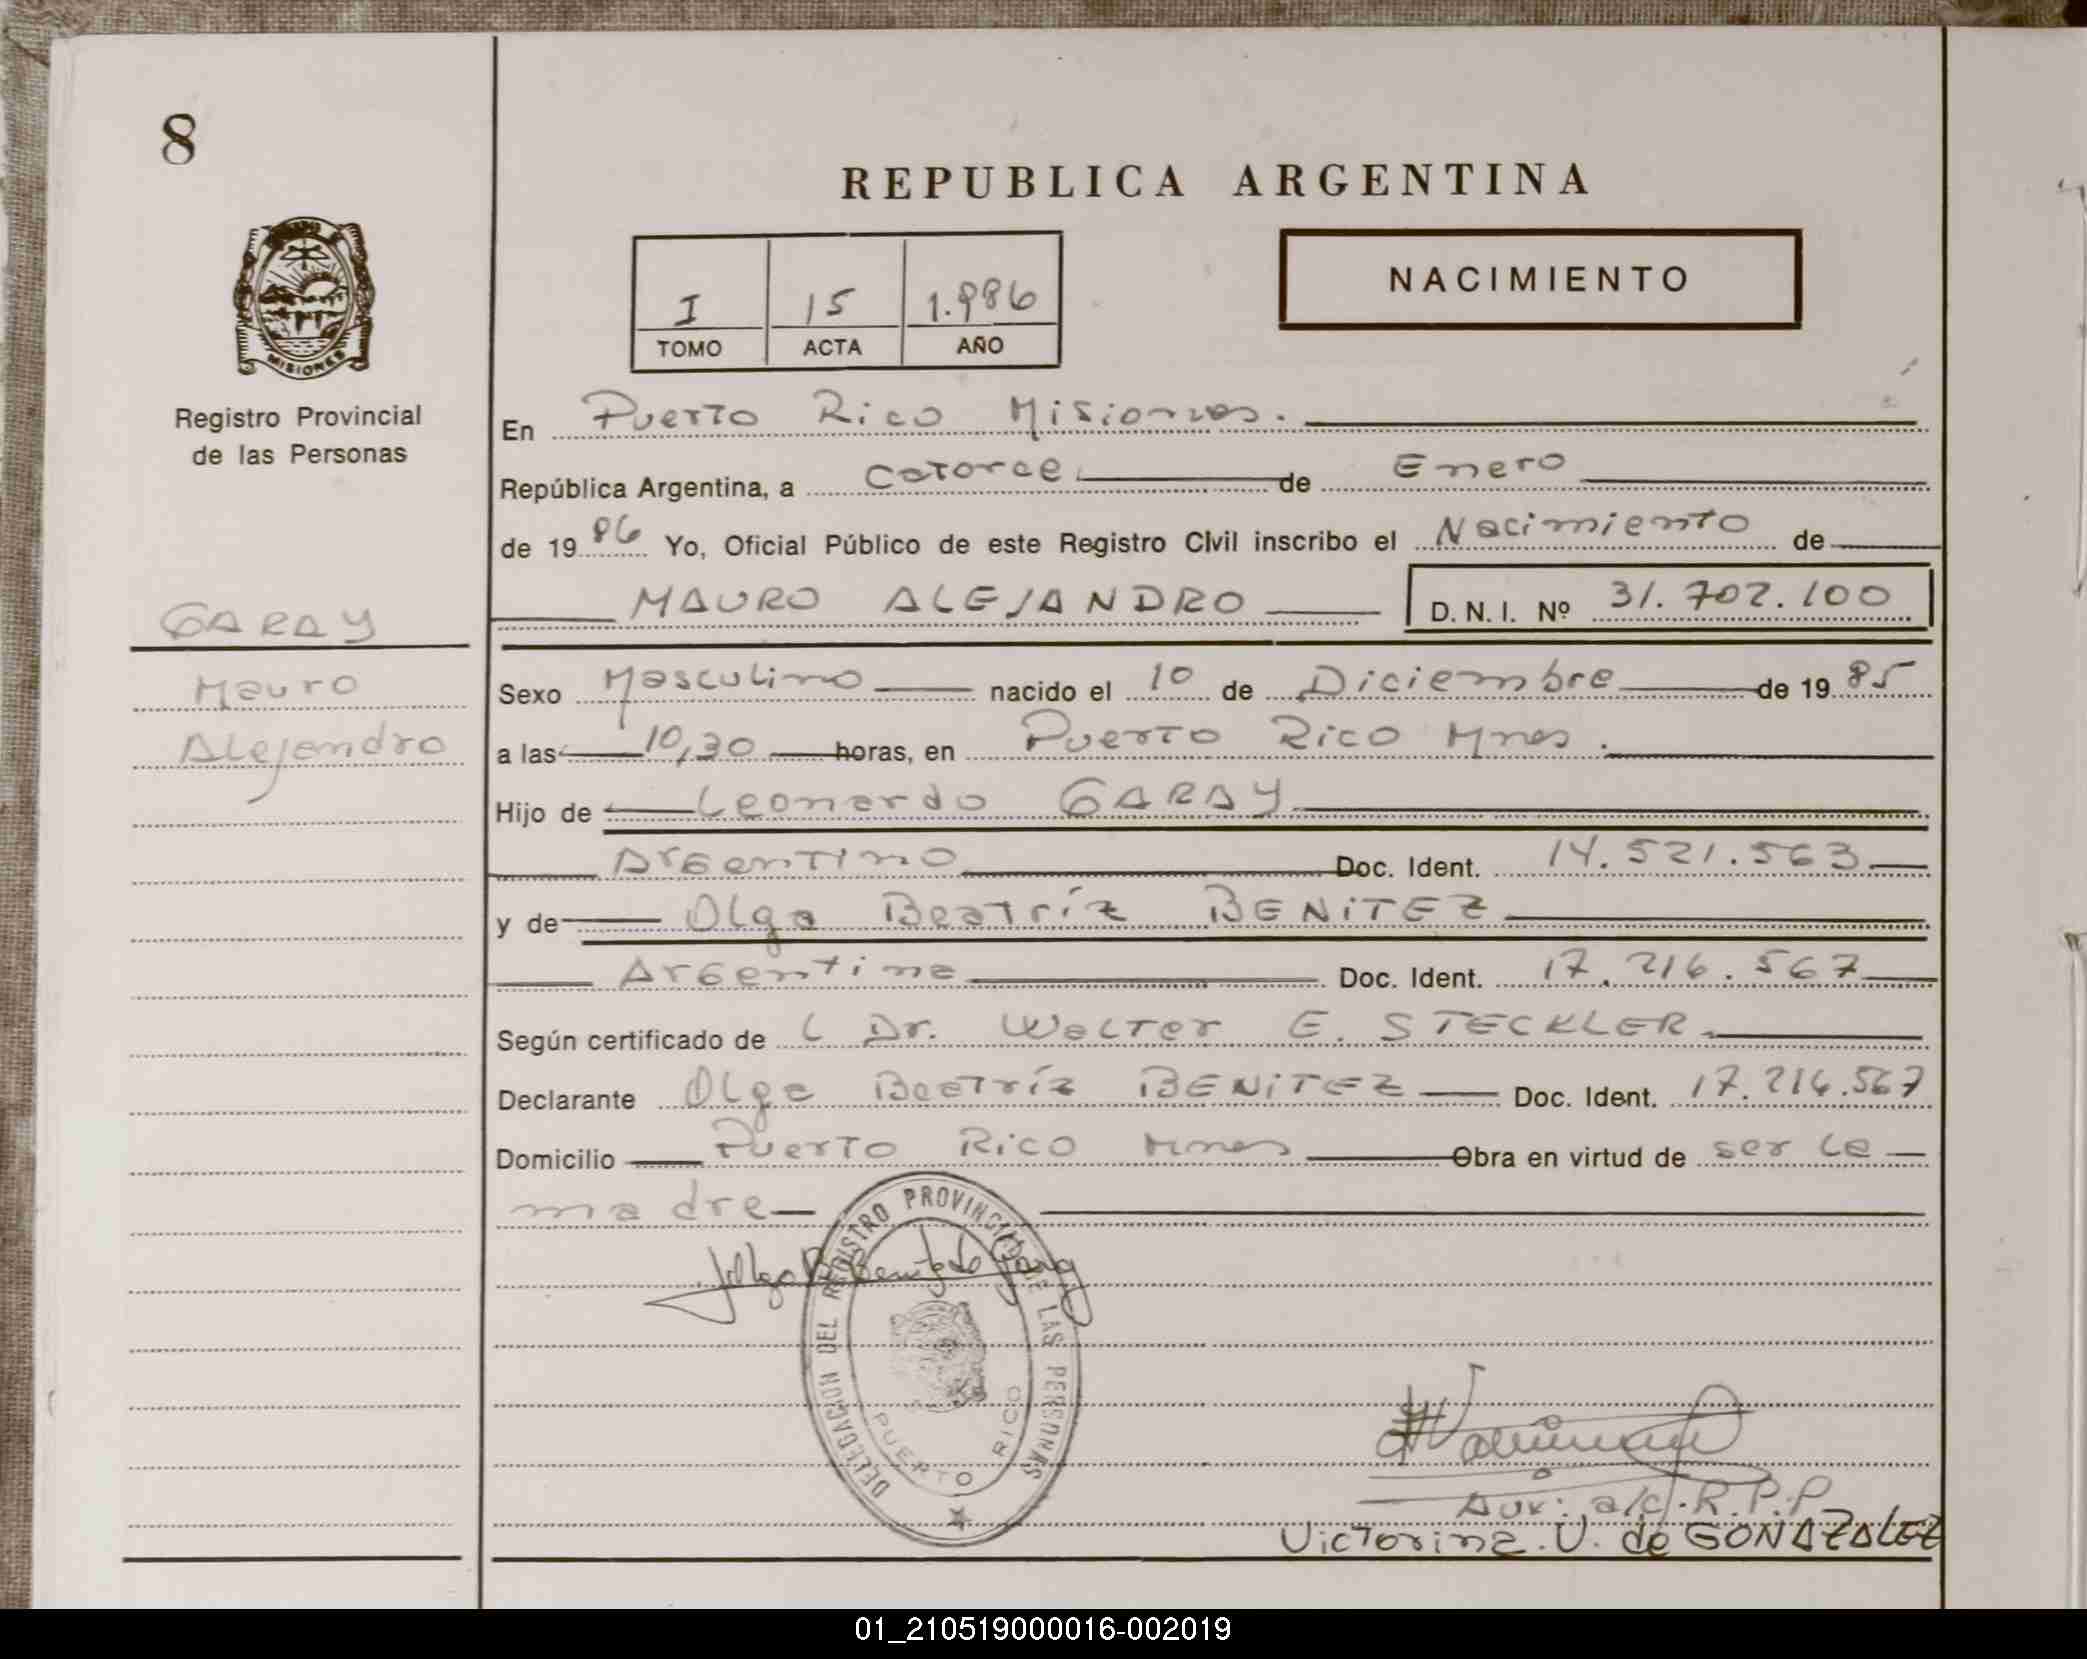 8
REPUBLICA ARGENTINA
MISIONES
Registro Provincial
de las Personas
I 15 1.986
TOMO ACTA AÑO
NACIMIENTO
En Puerto Rico Misiones.
República Argentina, a Catorce de Enero
de 19 86 Yo, Oficial Público de este Registro Civil inscribo el Nacimiento de
MAURO ALEJANDRO D. N. I. Nº 31.702.100
GARAY
Mauro
Alejandro
Sexo Masculino nacido el 10 de Diciembre de 19 85
a las 10,30 horas, en Puerto Rico Mnes.
Hijo de Leonardo GARAY
Argentino Doc. Ident. 14.521.563
y de Olga Beatríz BENITEZ
Argentina Doc. Ident. 17.216.567
Según certificado de l Dr. Walter E. STECKLER.
Declarante Olga Beatríz BENITEZ Doc. Ident. 17.216.567
Domicilio Puerto Rico Mnes Obra en virtud de ser la
madre
DELEGACION DEL REGISTRO PROVINCIAL DE LAS PERSONAS
PUERTO RICO
Aux: a/c. R.P.P
Victorina. U. de GONZALEZ
01_210519000016-002019